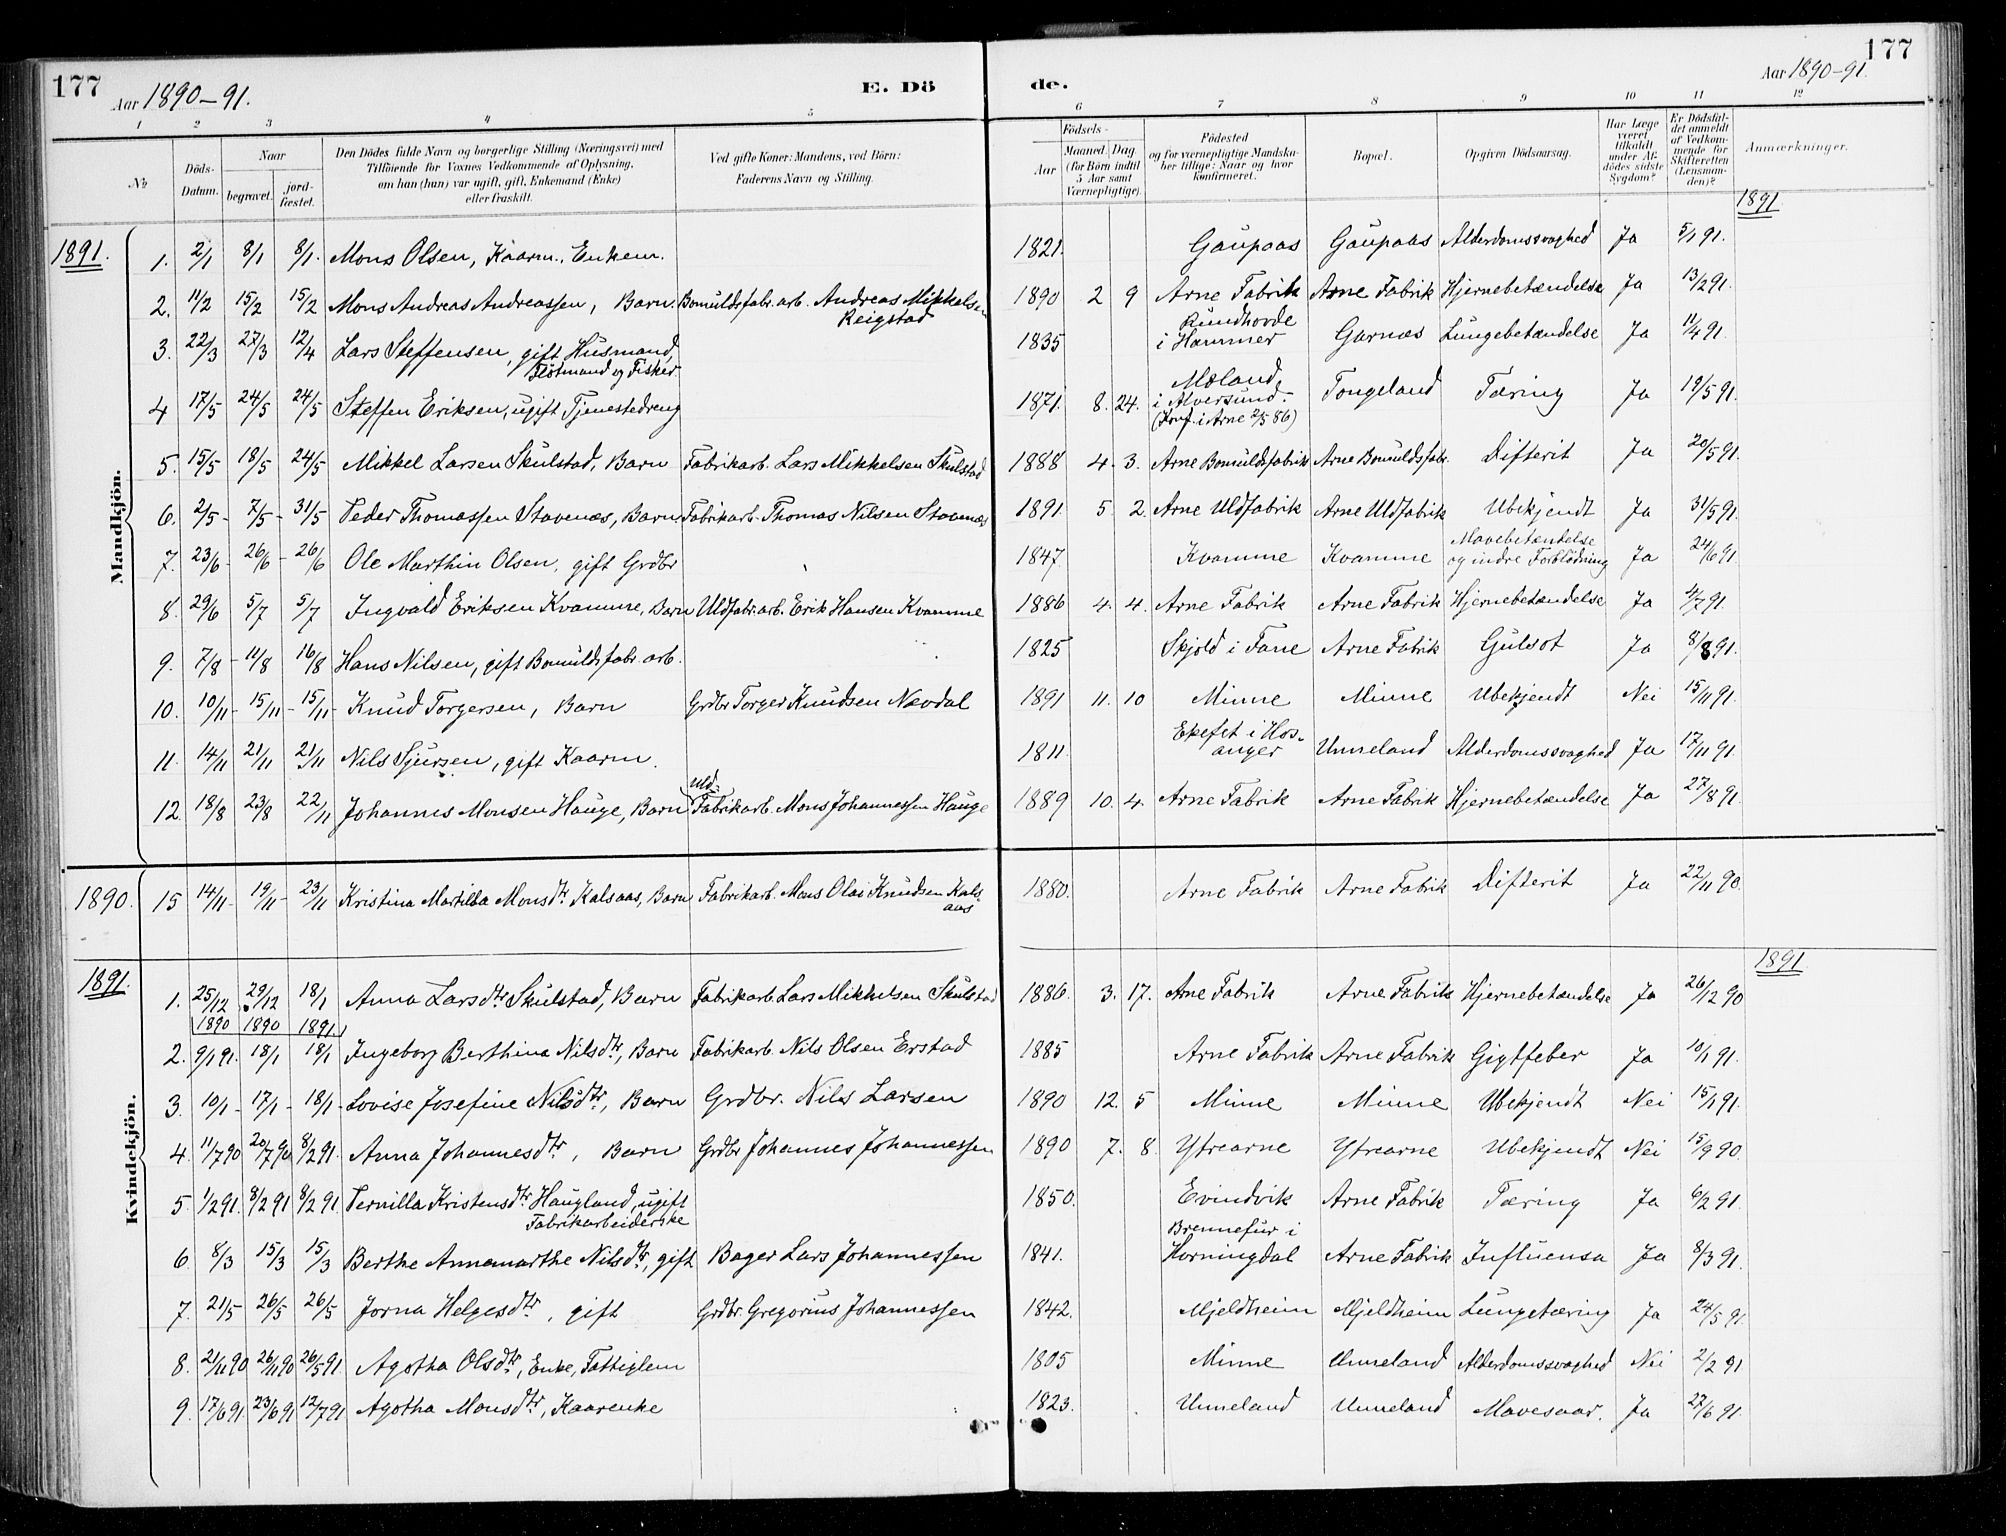 177 Aar 1890-91. E. Dö de. Aar 1890-91. 177
1 2 3 4 5 6 7 8 9 10 11 12
№ Döds-Datum. Naar begravet. jordfæstet. Den Dödes fulde Navn og borgerlige Stilling (Næringsvei) med Tilföiende for Voxnes Vedkommende af Oplysning, om han (hun) var ugift, gift, Enkemand (Enke) eller fraskilt. Ved gifte Koner: Mandens, ved Börn: Faderens Navn og Stilling. Födsels- Aar Maaned. Dag (for Börn indtil 5 Aar samt Værnepligtige). Födested og for værnepligtige Mandskaber tillige: Naar og hvor konfirmeret. Bopæl. Opgiven Dödsaarsag. Har Læge været tilkaldt under Afdödes sidste Sygdom? Er Dödsfaldet anmeldt af Vedkommende for Skifteretten (Lensmanden)? Anmærkninger.
1891. 1891
Mandkjön.
1. 2/1 8/1 8/1. Mons Olsen, Kaarm., Enkem. 1821. Gaupaas Gaupaas Alderdomssvaghed Ja 5/1 91.
2. 11/2 15/2 15/2 Mons Andreas Andreassen, Barn. Bomuldsfabr. arb. Andreas Mikkelsen Reigstad 1890 2 9 Arne Fabrik Arne Fabrik Hjernebetændelse Ja 13/2 91.
3. 22/3 27/3 12/4 Lars Steffensen, gift Husmand, Flötmand og Fisker. 1835 Rundhovde i Hammer Garnæs Lungebetændelse Ja 11/4 91.
4 17/5 24/5 24/5 Steffen Eriksen, ugift Tjenestedreng 1871. 8. 24. Mæland i Alversund. (Konf. i Arne 2/5 86) Tongeland Tæring Ja 19/5 91.
5. 15/5 18/5 24/5 Mikkel Larsen Skulstad, Barn Fabrikarb. Lars Mikkelsen Skulstad 1888 4. 3. Arne Bomuldsfabrik Arne Bomuldsfabr. Difterit Ja 20/5 91.
6. 2/5 - 7/5 - 31/5 Peder Thomassen Stavenæs, Barn Fabrikarb. Thomas Nilsen Stavenæs 1891 5 2. Arne Uldfabrik Arne Uldfabrik Ubekjendt Ja 31/5 91.
7. 23/6 - 26/6 - 26/6 Ole Marthin Olsen, gift Grdbr 1847 Kvamme Kvamme Mavebetændelse og indre Forblödning Ja 24/6 91.
8. 29/6 5/7 5/7 Ingvald Eriksen Kvamme, Barn Uldfabr. arb. Erik Hansen Kvamme 1886 4. 4. Arne Fabrik Arne Fabrik Hjernebetændelse Ja 4/7 91.
9. 7/8 - 11/8 16/8 Hans Nilsen, gift Bomuldsfabr. arb. 1825 Skjold i Fane Arne Fabrik Gulsot Ja 8/8 91.
10. 10/11 - 15/11 - 15/11 - Knud Torgersen, Barn Grdbr Torger Knudsen Nævdal 1891 11. 10 Minne Minne Ubekjendt Nei 15/11 91.
11. 14/11 21/11 21/11 Nils Sjursen, gift Kaarm. 1811. Ekefet i Hosanger Unneland Alderdomssvaghed Ja 17/11 91.
12. 18/8 23/8 22/11 Johannes Monsen Hauge, Barn Uld Fabrikarb. Mons Johannessen Hauge 1889 10. 4. Arne Fabrik Arne Fabrik Hjernebetændelse Ja 27/8 91.
1890. 15 14/11 - 19/11 - 23/11 Kristina Martilda Monsdtr Kalsaas, Barn Fabrikarb. Mons Olai Knudsen Kalsaas 1880. Arne Fabrik Arne Fabrik Difterit Ja 22/11 90.
1891. 1891
Kvindekjön.
1. 25/12 1890 29/12 1890 18/1 1891. Anna Larsdtr Skulstad, Barn Fabrikarb. Lars Mikkelsen Skulstad 1886. 3. 17. Arne Fabrik Arne Fabrik Hjernebetændelse Ja 26/12 90
2. 9/1 91. 18/1 18/1 Ingeborg Berthina Nilsdtr, Barn Fabrikarb. Nils Olsen Erstad 1885 Arne Fabrik Arne Fabrik Gigtfeber Ja 10/1 91.
3. 10/1 - 17/1 - 18/1 - Lovise Josefine Nilsdtr, Barn Grdbr. Nils Larsen 1890 12. 5 Minne Minne Ubekjendt Nei 15/1 91.
4. 11/7 90 20/7 90 8/2 91. Anna Johannesdtr, Barn Grdbr Johannes Johannessen 1890 7. 8. Ytrearne Ytrearne Ubekjendt Nei 15/9 90.
5. 1/2 91. 8/2 91 8/2 91. Pernilla Kristensdtr Haugland, ugift Fabrikarbeiderske 1850. Evindvik Arne Fabrik Tæring Ja 6/2 91.
6. 8/3 15/3 15/3 Berthe Annamarthe Nilsdtr, gift Bager Lars Johannessen 1841. Brennefur i Horningdal Arne Fabrik Influensa Ja 8/3 91.
7. 21/5 26/5 26/5 Jorna Helgesdtr, gift Grdbr. Gregorius Johannessen 1842. Mjeldheim Mjeldheim Lungetæring Ja 24/5 91.
8. 21/11 90 26/11 90 26/5 91. Agotha Olsdtr, Enke, Fattiglem 1805 Minne Unneland Alderdomssvaghed Nei 2/2 91
9. 17/6 91 23/6 91 12/7 91 Agotha Monsdtr, Kaarenke 1823. Unneland Unneland Mavesaar. Ja 27/6 91.